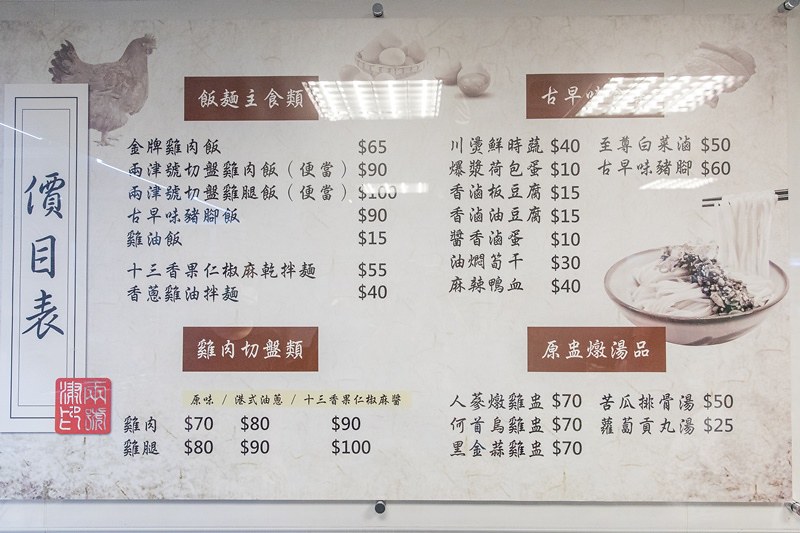 價目表
飯麵主食類
金牌雞肉飯 $65
兩津號切盤雞肉飯（便當） $90
兩津號切盤雞腿飯（便當） $100
古早味豬腳飯 $90
雞油飯 $15
十三香果仁椒麻乾拌麵 $55
香蔥雞油拌麵 $40
雞肉切盤類
原味 / 港式油蔥 / 十三香果仁椒麻醬
雞肉 $70 $80 $90
雞腿 $80 $90 $100
古早味
川燙鮮時蔬 $40 至尊白菜滷 $50
爆漿荷包蛋 $10 古早味豬腳 $60
香滷板豆腐 $15
香滷油豆腐 $15
醬香滷蛋 $10
油燜筍干 $30
麻辣鴨血 $40
原盅燉湯品
人蔘燉雞盅 $70 苦瓜排骨湯 $50
何首烏雞盅 $70 蘿蔔貢丸湯 $25
黑金蒜雞盅 $70